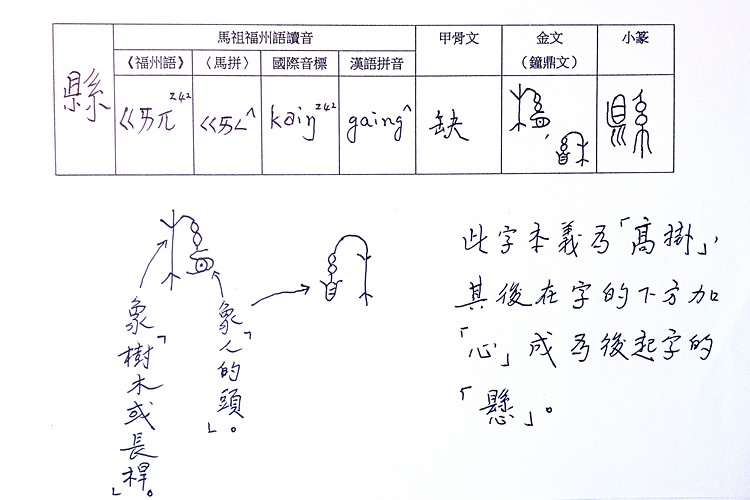 馬祖福州語讀音 甲骨文 金文 小篆
《福州語》 〈馬拼〉 國際音標 漢語拼音 (鐘鼎文)
縣 ㄍㄞㄫ²⁴² ㄍㄞㄥ^ kaiŋ²⁴² gaing^ 缺
此字本義為「高掛」,
其後在字的下方加
「心」成為後起字的
「懸」。
象「樹木或長桿」。
象「人的頭」。